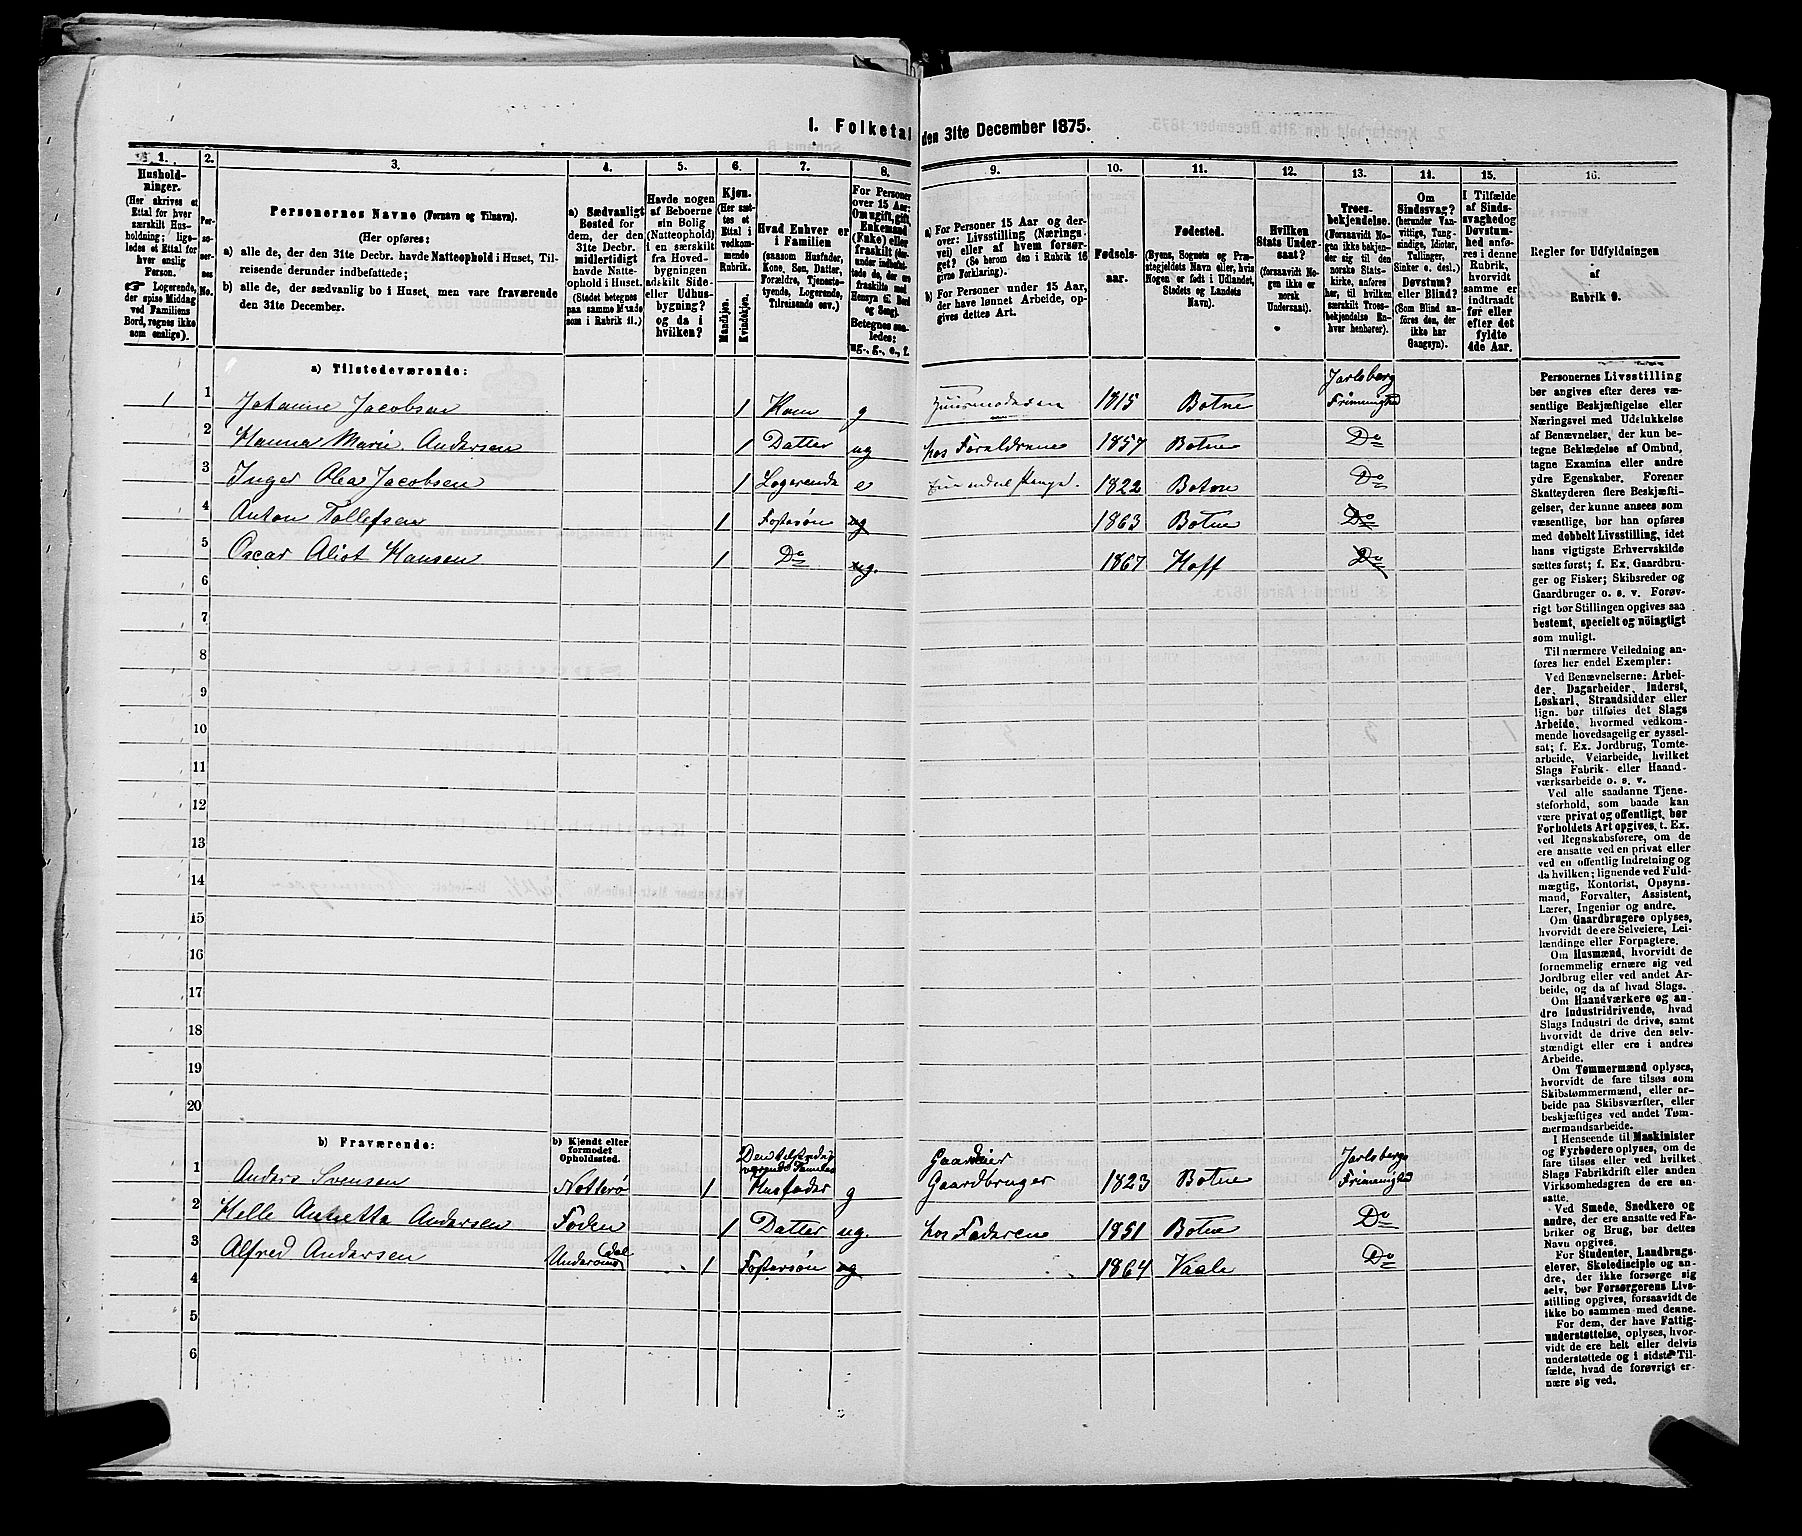 1. Folketal den 31te December 1875.
1. 2. 3. 4. 5. 6. 7. 8. 9. 10. 11. 12. 13. 14. 15. 16.
Husholdninger.
(Her skrives et
Ettal for hver
særskilt Husholdning;
ligeledes et Ettal for
hver enslig
Person.
Logerende,
der spise Middag
ved Familiens
Bord, regnes ikke
som enslige).
Personernes No.
Personernes Navne (Fornavn og Tilnavn).
(Her opføres:
a) alle de, der den 31te Decbr. havde Natteophold i Huset, Tilreisende derunder indbefattede;
b) alle de, der sædvanlig bo i Huset, men vare fraværende
den 31te December.
a) Sædvanligt
Bosted for
dem, der den
31te Decbr.
midlertidigt
havde Natteophold i Huset.
(Stedet betegnes
paa samme Maade
som i Rubrik 11.)
Havde nogen
af Beboerne
sin Bolig
(Natteophold)
i en særskilt
fra Hovedbygningen
adskilt Side- eller Udhusbygning?
og da i
hvilken?
Kjøn.
(Her sættes et
Ettal i
vedkommende
Rubrik.
Mandkjøn.
Kvindekjøn.
Hvad Enhver er
i Familien
(saasom Husfader,
Kone, Søn, Datter,
Forældre, Tjenestetyende, Logerende,
Tilreisende osv.)
For Personer
over 15 Aar:
Om ugift, gift,
Enkemand
(Enke) eller
fraskilt
Betegnes saaledes:
ug., g., e., f.
a) For Personer 15 Aar og derover: Livsstilling (Næringsvei) eller af hvem forsørget? (Se herom den i Rubrik 16
givne Forklaring).
b) For Personer under 15 Aar,
der have lønnet Arbeide, opgives dettes Art.
Fødselsaar.
Fødested.
(Byens, Sognets og Præstegjeldets Navn eller, hvis
Nogen er født i Udlandet,
Stedets og Landets
Navn).
Hvilken
Stats Undersaat?
(forsaavidt Nogen ikke er
norsk
Undersaat).
Troesbekjendelse.
(Forsaavidt Nogen ikke bekjender sig til den
norske Statskirke, anføres
her, til hvilken
særskilt Troesbekjendelse Enhver henhører).
Om
Sindssvag?
(herunder Vanvittige, Tungsindige, Idioter,
Tullinger,
Sinker o. desl.)
Døvstum?
eller Blind?
(Som Blind anføres den, der
ikke har
Gangsyn).
I Tilfælde
af Sindssvaghed og
Døvstumhed anføres i denne
Rubrik,
hvorvidt
samme er
indtraadt
før eller
efter det
fyldte
4de Aar.
Regler for Udfyldningen
af
Rubrik 9.
a) Tilstedeværende:
1 1 Johanne Jacobsen 1 Kone g Huusmoderen 1815 Botne Jarlsberg Frimenighed
2 Hanna Marie Andersen 1 Datter ug hos Forældrene 1857 Botne Do
3 Inger Olea Jacobsen 1 Logerende e 1822 Botne Do
4 Anton Tollefsen 1 Fostersøn ug 1863 Botne Do
5 Oscar Alist Hansen 1 Do ug. 1867 Hoff Do
6
7
8
9
10
11
12
13
14
15
16
17
18
19
20
b) Fraværende:
b) Kjendt eller
formodet
Opholdssted.
1 Anders Svensen Nøtterø 1 Den tilstedeværende Families Husfader g Gaardeier Gaardbruger 1823 Botne Jarlsbergs Frimenighed
2 Helle Antretta Andersen Foden 1 Datter ug. hos Faderene 1851 Botne Do
3 Alfred Andersen 1 Fostersøn ug 1864 Vaale Do
4
5
6
Personernes Livsstilling
bør angives efter deres væsentlige Beskjæftigelse eller
Næringsvei med Udelukkelse
af Benævnelser, der kun betegne Beklædelse af Ombud,
tagne Examina eller andre
ydre Egenskaber. Forener
Skatteyderen flere Beskjæftigelser, der kunne ansees som
væsentlige, bør han opføres
med dobbelt Livsstilling, idet
hans vigtigste Erhvervskilde
sættes først; f. Ex. Gaardbruger og Fisker; Skibsreder og
Gaardbruger o. s. v. Forøvrigt bør Stillingen opgives saa
bestemt, specielt og nöiagtigt
som muligt.
Til nærmere Veiledning anføres her endel Exempler:
Ved Benævnelserne: Arbeider, Dagarbeider, Inderst,
Løskarl, Strandsidder eller
lign. bør tilføies det Slags
Arbeide, hvormed vedkommende hovedsagelig er sysselsat; f. Ex. Jordbrug, Tomtearbeide, Veiarbeide, hvilket
Slags Fabrik- eller Haandværksarbeide o. s. v.
Ved alle saadanne Tjenesteforhold, som baade kan
være privat og offentligt, bør
Forholdets Art opgives, t. Ex.
ved Regnskabsførere, om de
ere ansatte ved en privat eller
ved en offentlig Indretning og
da hvilken; lignende ved Fuldmægtig, Kontorist, Opsynsmand, Forvalter, Assistent,
Lærer, Ingeniør og andre.
Om Gaardbrugere oplyses,
hvorvidt de ere Selveiere, Leilændinge eller Forpagtere.
Om Husmænd, hvorvidt de
fornemmelig ernære sig ved
Jordbrug eller ved andet Arbeide, og da af hvad Slags.
Om Haandværkere og andre Industridrivende, hvad
Slags Industri de drive, samt
hvorvidt de drive den selvstændigt eller ere i andres
Arbeide.
Om Tømmermænd oplyses,
hvorvidt de fare tilsøs som
Skibstømmermænd, eller arbeide paa Skibsværfter, eller
beskjæftiges ved andet Tømmermandsarbeide.
I Henseende til Maskinister
og Fyrbødere oplyses, om de
fare tilsøs eller ved hvilket
Slags Fabrikdrift eller anden
Virksomhedsgren de ere ansatte.
Ved Smede, Snedkere og
andre, der ere ansatte ved Fabriker og Brug, bør dettes
Navn opgives.
For Studenter, Landbrugselever, Skoledisciple og andre, der ikke forsørge sig
selv, bør Forsørgerens Livsstilling opgives, forsaavidt de
ikke bo sammen med denne.
For dem, der have Fattigunderstøttelse, oplyses, hvorvidt de ere helt eller delvis
understøttede og i sidste Tilfælde, hvad de forøvrigt ernære sig ved.